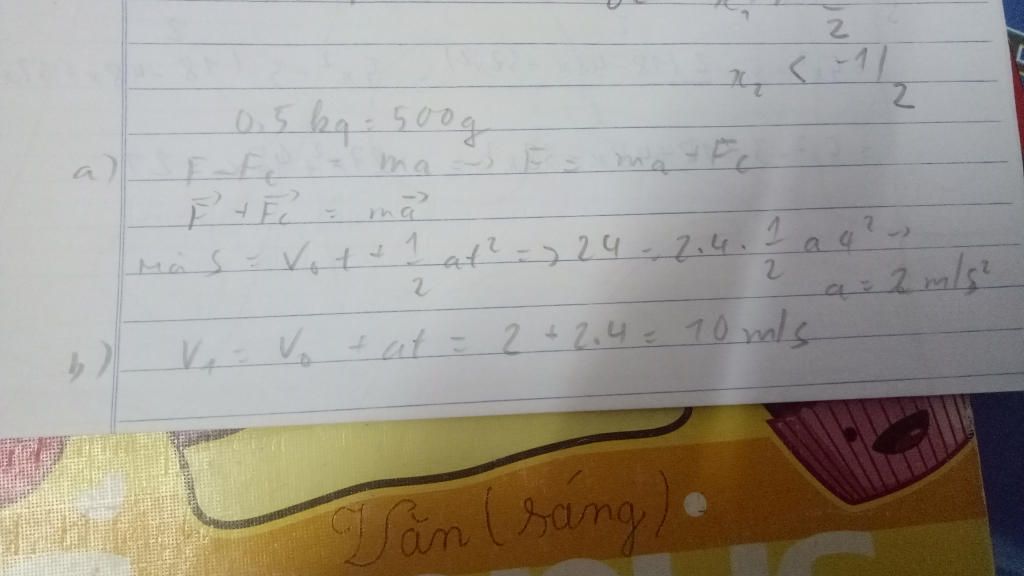 x₁
2
x₂ < -1/2
0,5 kg = 500g
a) F - Fc = ma => F = ma + Fc
F⃗ + F⃗c = ma⃗
mà S = V₀t + 1/2 at² => 24 = 2.4. 1/2 a 4² ->
a = 2 m/s²
b) V₁ = V₀ + at = 2 + 2.4 = 10 m/s
Văn (sáng)